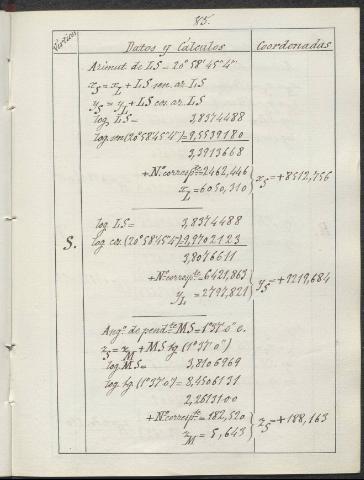 85.
Vértices Datos y Cálculos Coordenadas
Azimut de LS = 20° 58' 45" 4"'
x_S = x_L + LS sen. az. LS
y_S = y_L + LS cos. az. LS
log. LS = 3,8374488
log. sen (20° 58' 45" 4"') = 9,5539180
3,3913668
+ N.º corresp.te = 2462,446
x_L = 6050,310 } x_S = +8512,756
log. LS = 3,8374488
S. log cos. (20° 58' 45" 4"') = 9,9702123
3,8076611
+ N.º corresp.te = 6421,863
y_L = 2797,821 } y_S = +9219,684
Ang.º de pend.te MS = 1° 37' 0" c.
z_S = z_M + MS tg (1° 37' 0")
log. MS = 3,8106969
log. tg (1° 37' 0") = 8,4506131
2,2613100
+ N.º corresp.te = 182,520
z_M = 5,643 } z_S = +188,163